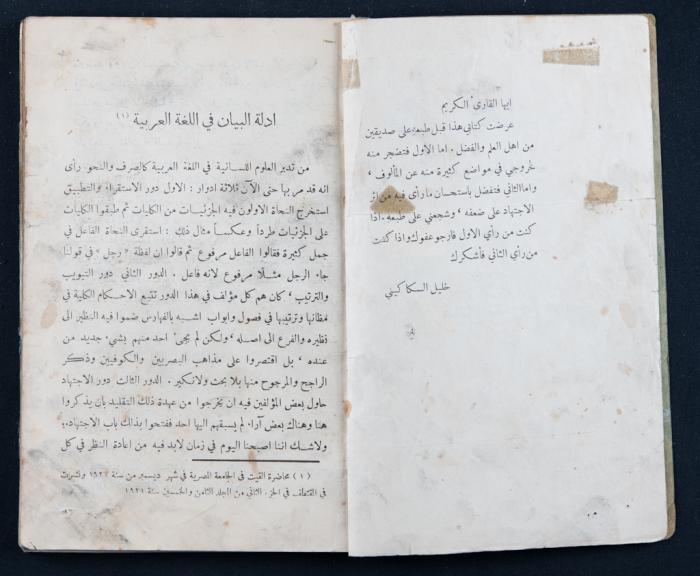 ايها القارئ الكريم
عرضت كتابي هذا قبل طبعه على صديقين
من اهل العلم والفضل. اما الاول فتضجر منه
لخروجي في مواضع كثيرة منه عن المألوف،
واما الثاني فتفضل باستحسان ما رأى فيه من اثر
الاجتهاد على ضعفه، وشجعني على طبعه. اذا
كنت من رأي الاول فارجو عفوك واذا كنت
من رأي الثاني فأشكرك
خليل السكاكيني
ادلة البيان في اللغة العربية (١)
من تدبر العلوم اللسانية في اللغة العربية كالصرف والنحو رأى
انه قد مر بها حتى الآن ثلاثة ادوار: الاول دور الاستقراء والتطبيق
استخرج النحاة الاولون فيه الجزئيات من الكليات ثم طبقوا الكليات
على الجزئيات طرداً وعكساً مثال ذلك: استقرى النحاة الفاعل في
جمل كثيرة فقالوا الفاعل مرفوع ثم قالوا ان لفظة «رجل» في قولنا
جاء الرجل مثلاً مرفوع لانه فاعل. الدور الثاني دور التبويب
والترتيب، كان هم كل مؤلف في هذا الدور تتبع الاحكام الكلية في
مظانها وترتيبها في فصول وابواب اشبه بالفهارس ضموا فيه النظير الى
نظيره والفرع الى اصله، ولكن لم يجئ احد منهم بشيء جديد من
عنده، بل اقتصروا على مذاهب البصريين والكوفيين وذكر
الراجح والمرجوح منها بلا بحث ولا نكير. الدور الثالث دور الاجتهاد
حاول بعض المؤلفين فيه ان يخرجوا من عهدة ذلك التقليد بان يذكروا
هنا وهناك بعض آراء لم يسبقهم اليها احد ففتحوا بذلك باب الاجتهاد،
ولا شك اننا اصبحنا اليوم في زمان لابد فيه من اعادة النظر في كل
(١) محاضرة القيت في الجامعة المصرية في شهر ديسمبر من سنة ونشرت
في المقتطف في الجزء الثاني من المجلد الثامن والخمسين سنة ١٩٢١